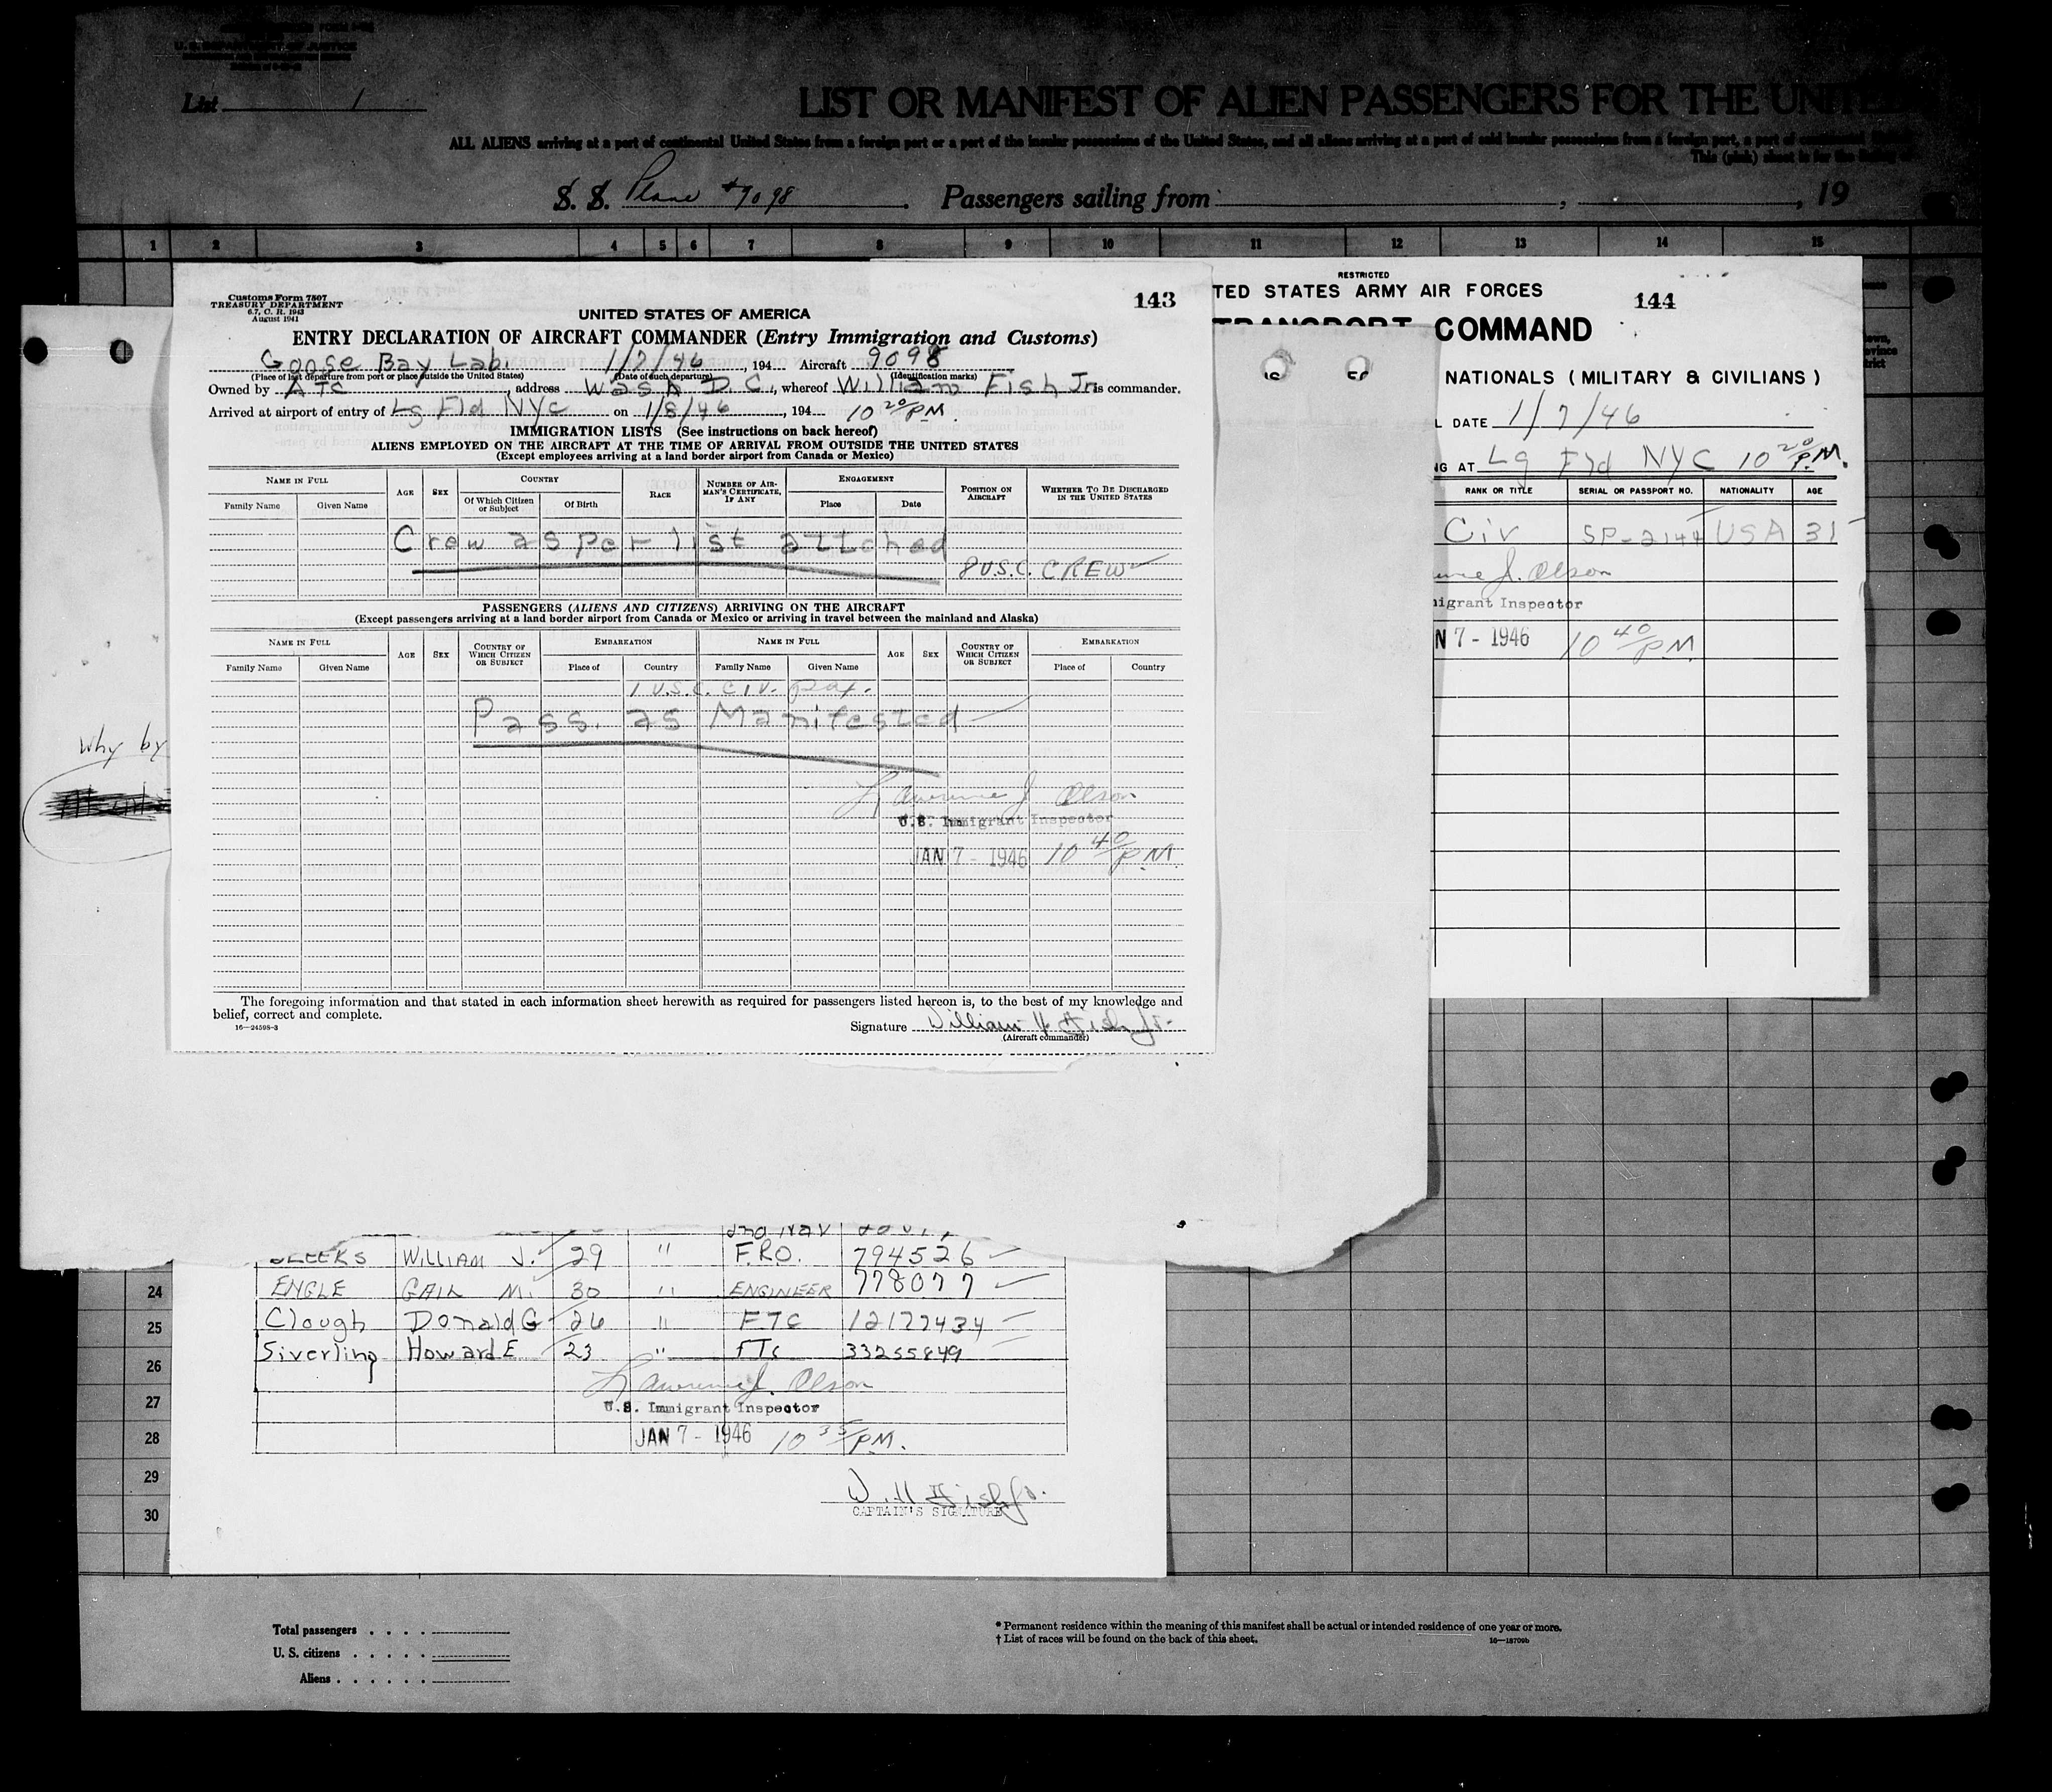 U. S. DEPARTMENT OF JUSTICE
List 1
LIST OR MANIFEST OF ALIEN PASSENGERS FOR THE UNITED
ALL ALIENS arriving at a port of continental United States from a foreign port or a port of the insular possessions of the United States, and all aliens arriving at a port of said insular possessions from a foreign port, a port of continental
This (pink) sheet is for the listing of
S. S. Plane #9098 . Passengers sailing from , , 19
1 2 3 4 5 6 7 8 9 10 11 12 13 14 15
Customs Form 7507
TREASURY DEPARTMENT
6.7, C. R. 1943
August 1941
143
UNITED STATES OF AMERICA
ENTRY DECLARATION OF AIRCRAFT COMMANDER (Entry Immigration and Customs)
Goose Bay Lab. 1/7/46, 194 Aircraft 9098
(Place of last departure from port or place outside the United States) (Date of such departure) (Identification marks)
Owned by ATC, address Wash D.C., whereof William Fish Jr is commander.
Arrived at airport of entry of Lg Fld NYC on 1/8/46, 194 10 20/PM.
IMMIGRATION LISTS (See instructions on back hereof)
ALIENS EMPLOYED ON THE AIRCRAFT AT THE TIME OF ARRIVAL FROM OUTSIDE THE UNITED STATES
(Except employees arriving at a land border airport from Canada or Mexico)
NAME IN FULL AGE SEX COUNTRY RACE NUMBER OF AIRMAN'S CERTIFICATE, IF ANY ENGAGEMENT POSITION ON AIRCRAFT WHETHER TO BE DISCHARGED IN THE UNITED STATES
Family Name Given Name Of Which Citizen or Subject Of Birth Place Date
Crew as per list attched
8 U.S.C. CREW
PASSENGERS (ALIENS AND CITIZENS) ARRIVING ON THE AIRCRAFT
(Except passengers arriving at a land border airport from Canada or Mexico or arriving in travel between the mainland and Alaska)
NAME IN FULL AGE SEX COUNTRY OF WHICH CITIZEN OR SUBJECT EMBARKATION NAME IN FULL AGE SEX COUNTRY OF WHICH CITIZEN OR SUBJECT EMBARKATION
Family Name Given Name Place of Country Family Name Given Name Place of Country
1 U.S.C. CIV. Pax.
Pass. as Manifested
Lawrence J. Olson
U.S. Immigrant Inspector
JAN 7 - 1946 10 40/P.M.
The foregoing information and that stated in each information sheet herewith as required for passengers listed hereon is, to the best of my knowledge and
belief, correct and complete.
16—24598-3
Signature William H Fish Jr.
(Aircraft commander)
RESTRICTED
TED STATES ARMY AIR FORCES
144
TRANSPORT COMMAND
NATIONALS (MILITARY & CIVILIANS)
L DATE 1/7/46
NG AT Lg Fld NYC 10 20/P.M.
RANK OR TITLE SERIAL OR PASSPORT NO. NATIONALITY AGE
Civ SP-2144 USA 31
J. Olson
migrant Inspector
N 7 - 1946 10 40/P.M.
Why by
2nd Nav
WILLIAM J. 29 " F.R.O. 794526
ENGLE GAIL M. 30 " ENGINEER 778077
Clough Donald G 26 " FTC 12177434
Siverling Howard E 23 " FTC 33255849
Lawrence J. Olson
U.S. Immigrant Inspector
JAN 7 - 1946 10 35/P.M.
W. H Fish Jr.
CAPTAIN'S SIGNATURE
24
25
26
27
28
29
30
Total passengers
U. S. citizens
Aliens
* Permanent residence within the meaning of this manifest shall be actual or intended residence of one year or more.
† List of races will be found on the back of this sheet.
16—18709b